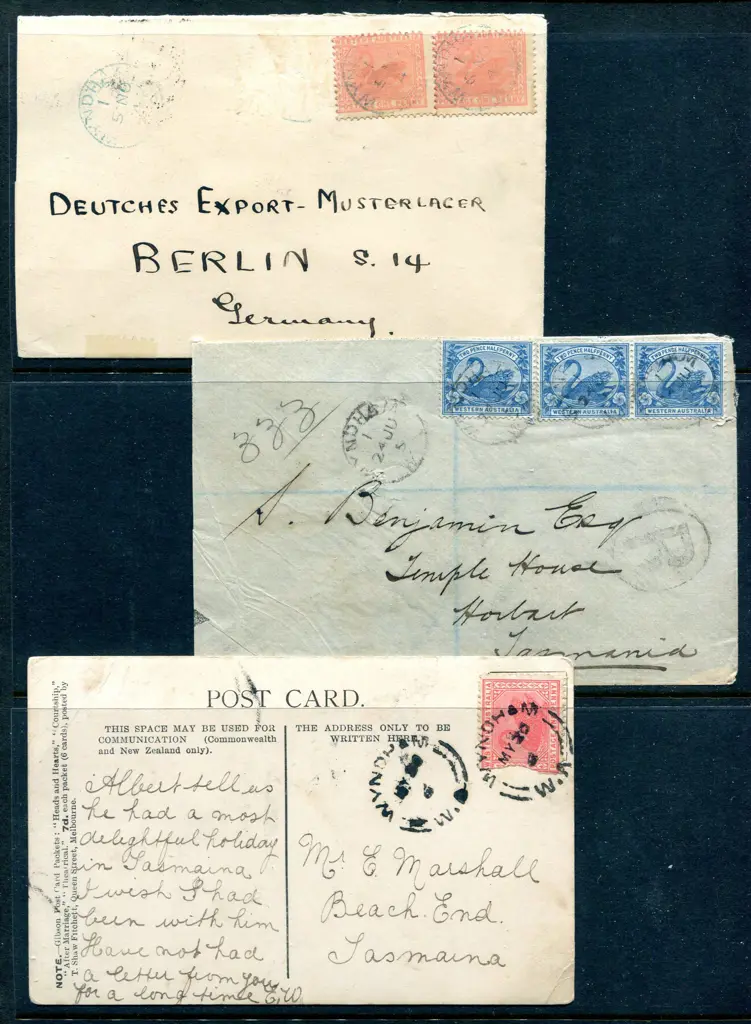 WYNDHAM
1
5 NO
ONE PENNY
DEUTCHES EXPORT-MUSTERLAGER
BERLIN S. 14
Germany.
TWO PENCE HALFPENNY
WESTERN AUSTRALIA
TWO PENCE HALFPENNY
WESTERN AUSTRALIA
TWO PENCE HALFPENNY
WESTERN AUSTRALIA
333/
WYNDHAM
1
24 JU
5
R
S. Benjamin Esq
Temple House
Hobart
Tasmania
POST CARD.
THIS SPACE MAY BE USED FOR
COMMUNICATION (Commonwealth
and New Zealand only).
THE ADDRESS ONLY TO BE
WRITTEN HERE.
NOTE.—Gibson Post Card Packets: "Heads and Hearts," "Courtship,"
"After Marriage," "Theatrical." 7d. each packet (6 cards), posted by
T. Shaw Fitchett, Queen Street, Melbourne.
Albert tell us
he had a most
delightful holiday
in Tasmaina
I wish I had
been with him
Have not had
a letter from you
for a long time E.W.
WYNDHAM
W.A.
WYNDHAM
MY 30
W.A.
Mr E. Marshall
Beach. End.
Tasmaina